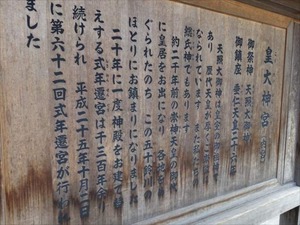 皇大神宮(内宮)
御祭神 天照大御神
御鎮座 垂仁天皇二十六年
天照大御神は皇室の御祖神で
あり 歴代天皇が厚くご崇敬に
なられています また私たちの
総氏神でもあります
約二千年前の崇神天皇の御代
に皇居をお出になり 各地を
めぐられたのち この五十鈴川の
ほとりにお鎮まりになりました
二十年に一度神殿をお建て替
えする式年遷宮は千三百年余り
続けられ 平成二十五年十月二日
に第六十二回式年遷宮が行われ
ました